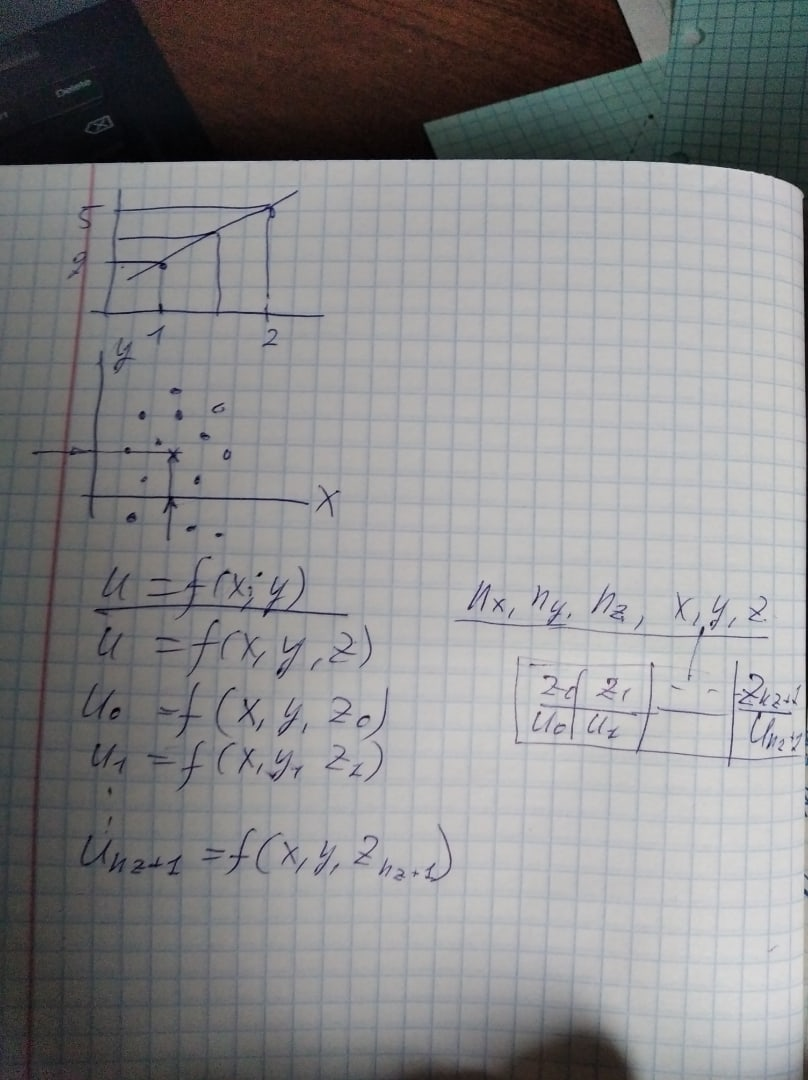 Delete
5
2
1 2
y
X
u = f(x; y)
u = f(x, y, z)
u₀ = f(x, y, z₀)
u₁ = f(x, y, z₁)
⋮
u_{nz+1} = f(x, y, z_{nz+1})
nx, ny, nz, x, y, z
z₀ | z₁ | - - - | z_{nz+1}
u₀ | u₁ | | u_{nz+1}